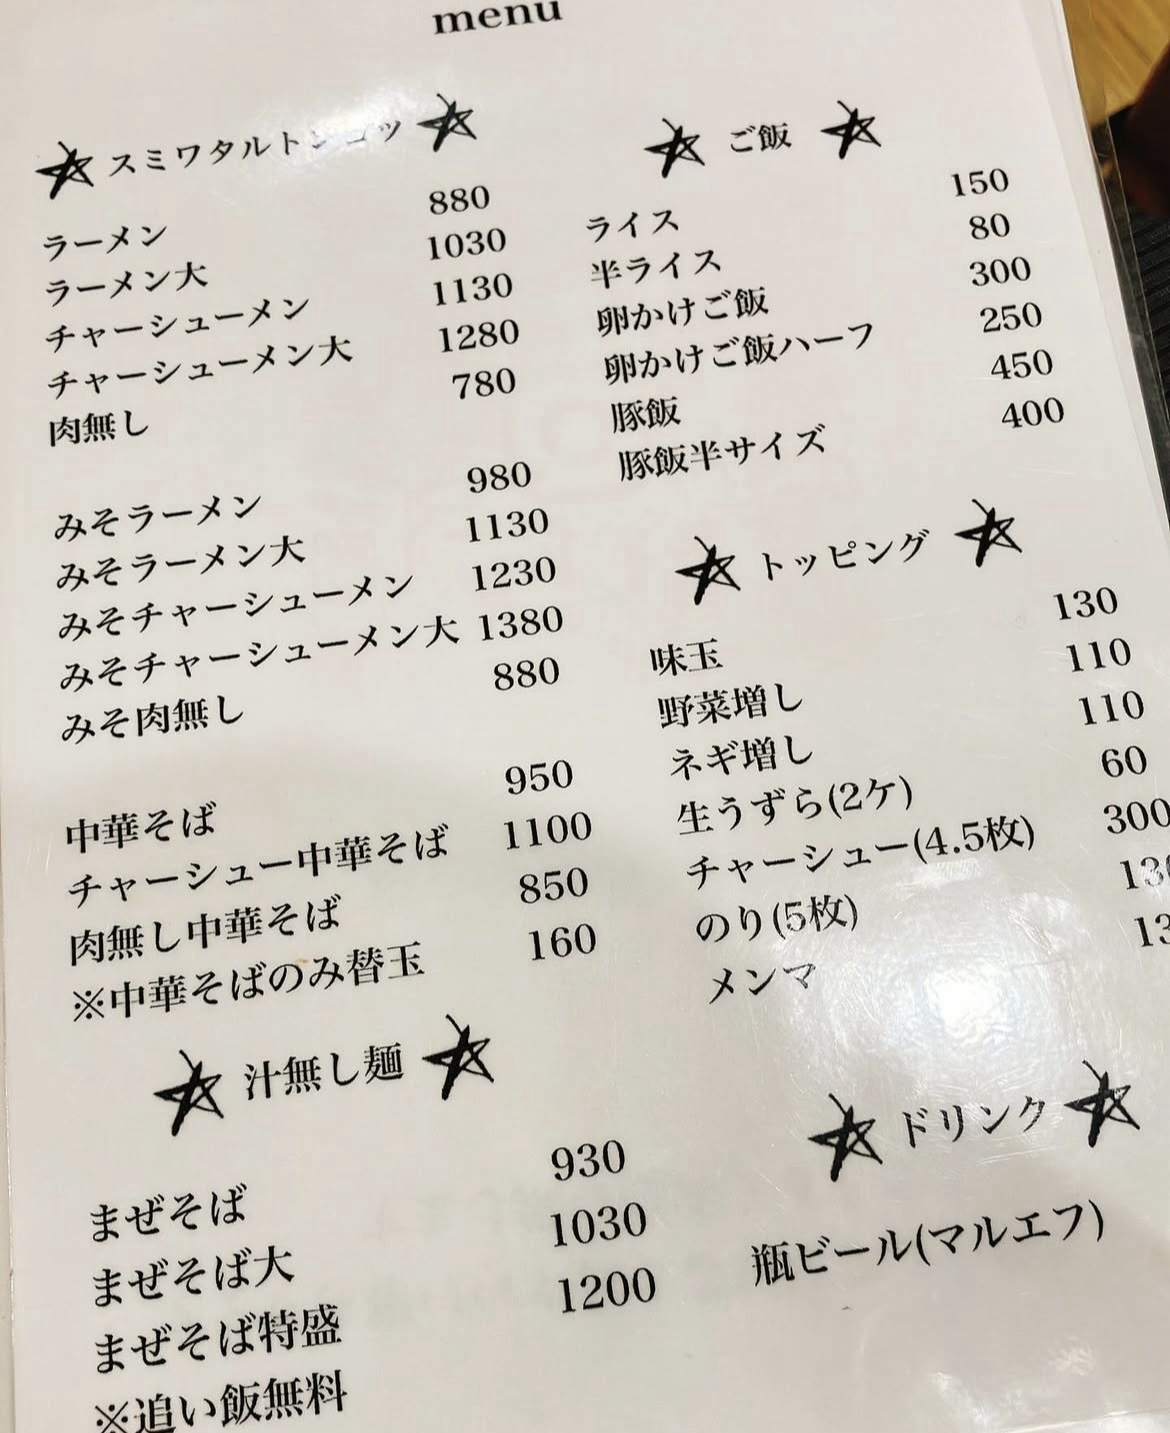 menu
スミワタルトンコツ
ラーメン 880
ラーメン大 1030
チャーシューメン 1130
チャーシューメン大 1280
肉無し 780
みそラーメン 980
みそラーメン大 1130
みそチャーシューメン 1230
みそチャーシューメン大 1380
みそ肉無し 880
中華そば 950
チャーシュー中華そば 1100
肉無し中華そば 850
※中華そばのみ替玉 160
汁無し麺
まぜそば 930
まぜそば大 1030
まぜそば特盛 1200
※追い飯無料
ご飯
ライス 150
半ライス 80
卵かけご飯 300
卵かけご飯ハーフ 250
豚飯 450
豚飯半サイズ 400
トッピング
味玉 130
野菜増し 110
ネギ増し 110
生うずら(2ケ) 60
チャーシュー(4.5枚) 300
のり(5枚)
メンマ
ドリンク
瓶ビール(マルエフ)